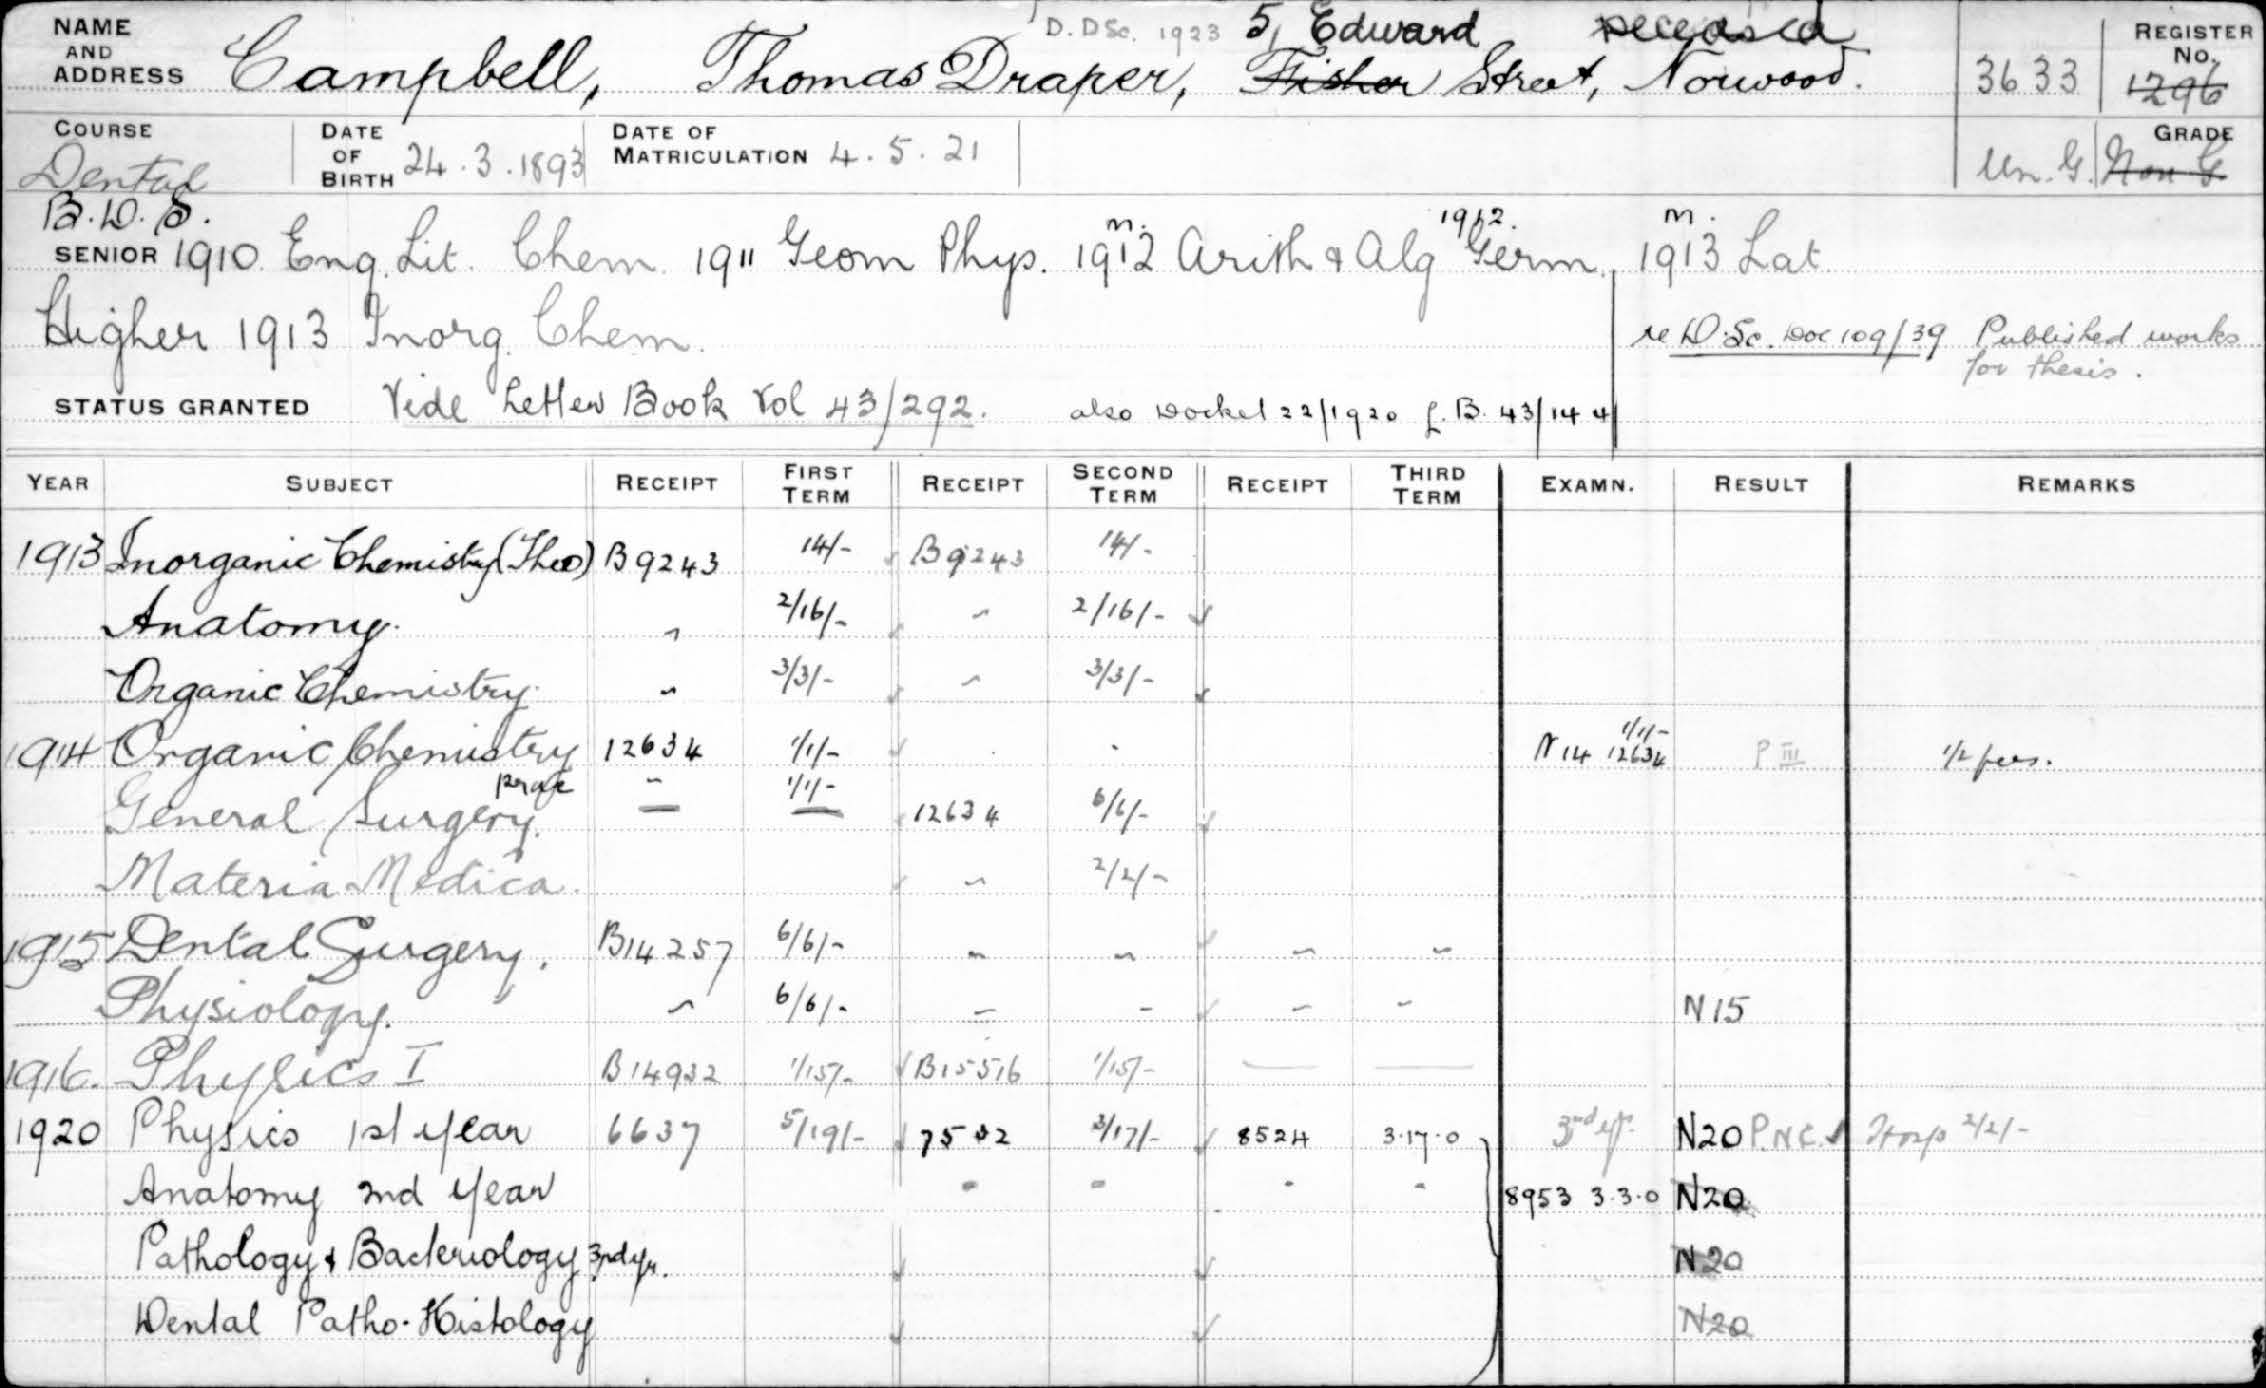 D.DSc. 1923 5, Edward Deceased
NAME AND ADDRESS Campbell, Thomas Draper, Fisher Street, Norwood. 3633 REGISTER No. 1296
COURSE Dental DATE OF BIRTH 24.3.1893 DATE OF MATRICULATION 4.5.21 Un. G. GRADE Non G
B.D.S.
m. 1912. m.
SENIOR 1910 Eng. Lit. Chem. 1911 Geom Phys. 1912 Arith & Alg Germ. 1913 Lat
Higher 1913 Inorg. Chem. re D.Sc. Doc 109/39 Published works
for thesis.
STATUS GRANTED Vide Letter Book Vol 43/292. also Docket 22/1920 L.B. 43/144
YEAR SUBJECT RECEIPT FIRST TERM RECEIPT SECOND TERM RECEIPT THIRD TERM EXAMN. RESULT REMARKS
1913 Inorganic Chemistry (Theo) B9243 14/- B9243 14/-
Anatomy. " 2/16/- " 2/16/-
Organic Chemistry. " 3/3/- " 3/3/-
1914 Organic Chemistry 12634 1/1/- N14 1/1/- 12634 P III 1/2 fees.
prac " 1/1/-
General Surgery. — — 12634 6/6/-
Materia Medica. " 2/2/-
1915 Dental Surgery. B14257 6/6/- " " " "
Physiology. " 6/6/- " " " " N15
1916. Physics I B14932 1/15/- B15516 1/15/- — —
1920 Physics 1st year 6637 5/19/- 7502 3/17/- 8524 3.17.0 3rd yr. N20 P.N.C. Hosp 2/2/-
Anatomy 2nd year " " " " 8953 3.3.0 N20
Pathology & Bacteriology 3rd yr. N20
Dental Patho. Histology N20